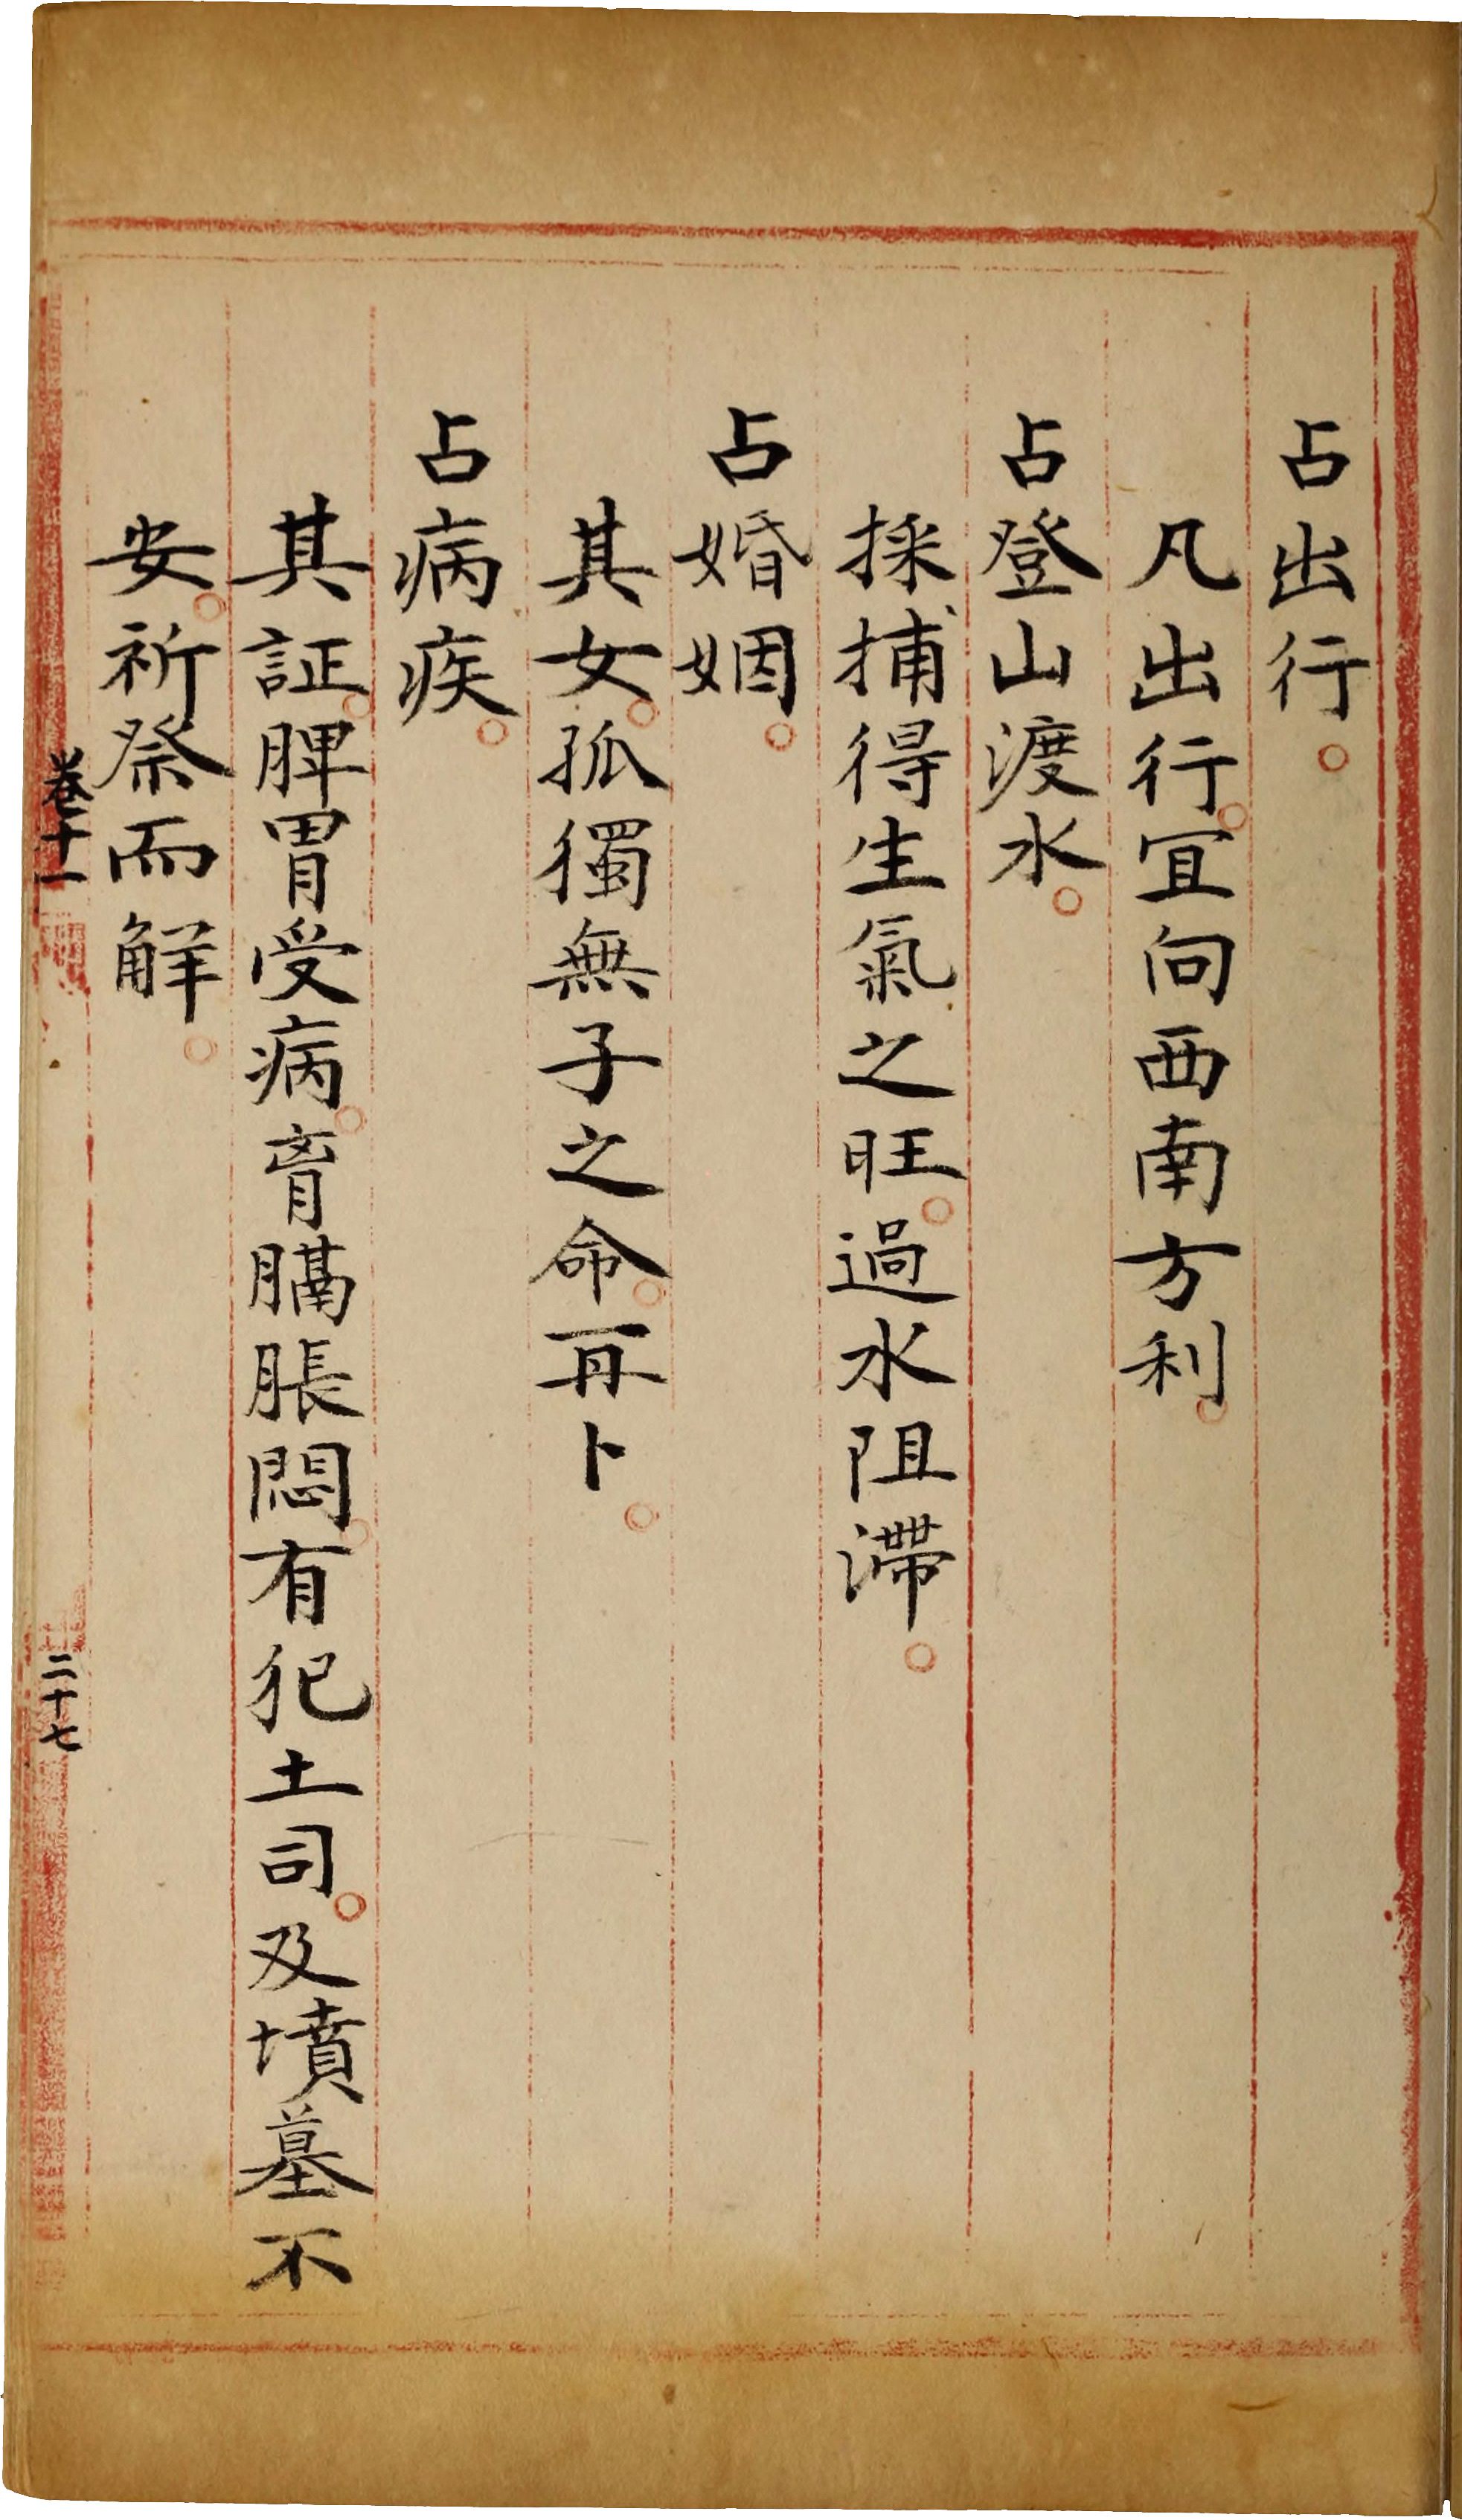 占出行。
凡出行。宜向西南方利。
占登山渡水。
採捕得生氣之旺。過水阻滯。
占婚姻。
其女。孤獨無子之命。再卜。
占病疾。
其証。脾胃受病。育膈脹悶。有犯土司。及墳墓不
安。祈祭而解。
卷十一
二十七